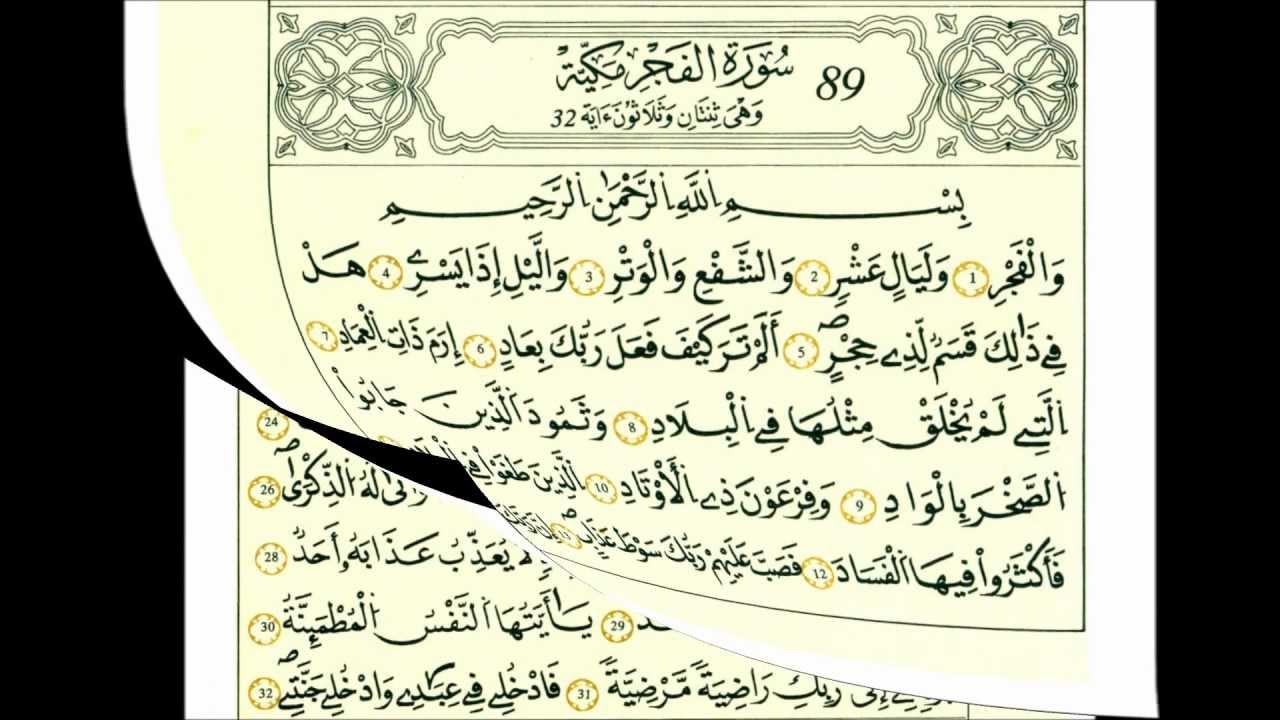 سُورَةُ الفَجْرِ مَكِّيَّة 89
وَهْىَ ثِنتَانِ وَثَلَاثُونَ ءَايَة 32
بِسْمِ اِللَّهِ اِلرَّحْمَٰنِ اِلرَّحِيمِ
وَالْفَجْرِ 1 وَلَيَالٍ عَشْرٍ 2 وَالشَّفْعِ وَالْوَتْرِ 3 وَالَّيْلِ إِذَا يَسْرِے 4 هَلْ
فِے ذَٰلِكَ قَسَمٌ لِّذِے حِجْرٍ 5 أَلَمْ تَرَ كَيْفَ فَعَلَ رَبُّكَ بِعَادٍ 6 إِرَمَ ذَاتِ اِلْعِمَادِ 7
اِلتِے لَمْ يُخْلَقْ مِثْلُهَا فِے اِلْبِلَادِ 8 وَثَمُودَ اَلَّذِينَ جَابُواْ
اُلصَّخْرَ بِالْوَادِ 9 وَفِرْعَوْنَ ذِے اِلْأَوْتَادِ 10 اِلَّذِينَ طَغَوْاْ فِے
فَأَكْثَرُواْ فِيهَا اَلْفَسَادَ 12 فَصَبَّ عَلَيْهِمْ رَبُّكَ سَوْطَ عَذَابٍ 13 إِنَّ رَبَّكَ
24
لَهُ اُلذِّكْرَىٰ 26
يُعَذِّبُ عَذَابَهُۥ أَحَدٌ 28
29 يَٰأَيَّتُهَا اَلنَّفْسُ اُلْمُطْمَئِنَّةُ 30
إِلَىٰ رَبِّكِ رَاضِيَةً مَّرْضِيَّةً 31 فَادْخُلِے فِے عِبَٰدِے وَادْخُلِے جَنَّتِے 32